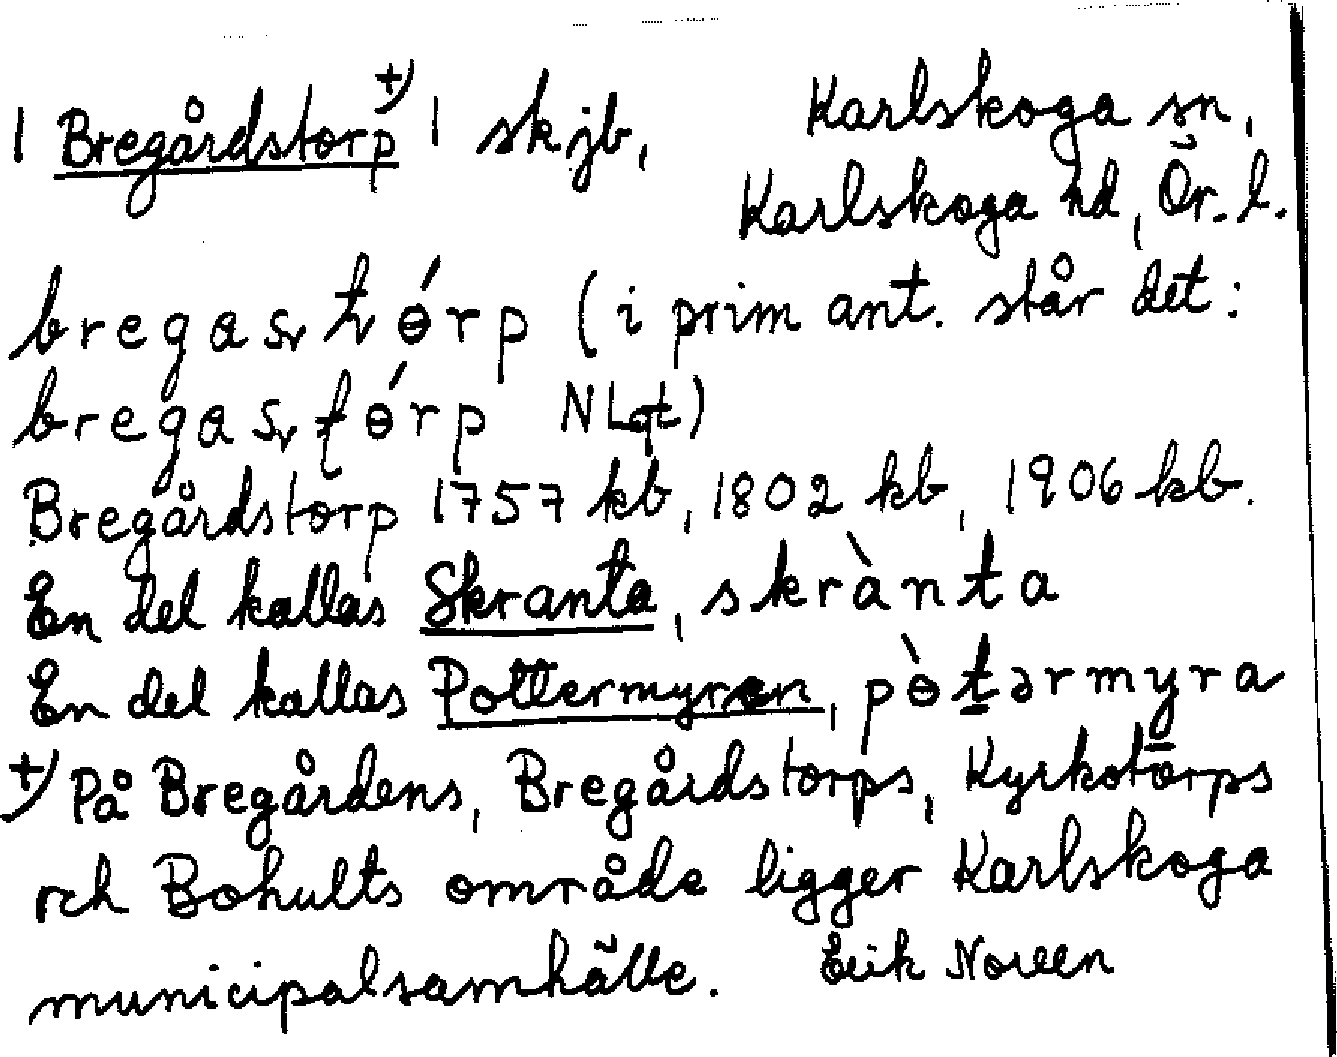 | Bregårdstorp +) | skjb, Karlskoga sn,
Karlskoga hd, Ör. l.
bregasv tɵ́rp (i prim ant. står det:
bregasv ƭɵ́rp NLqt)
Bregårdstorp 1757 kb, 1802 kb, 1906 kb.
En del kallas Skranta, skrànta
En del kallas Pottermyren, pɵ̀tərmyra
+) På Bregårdens, Bregårdstorps, Kyrkotorps
och Bohults område ligger Karlskoga
municipalsamhälle. Erik Noreen